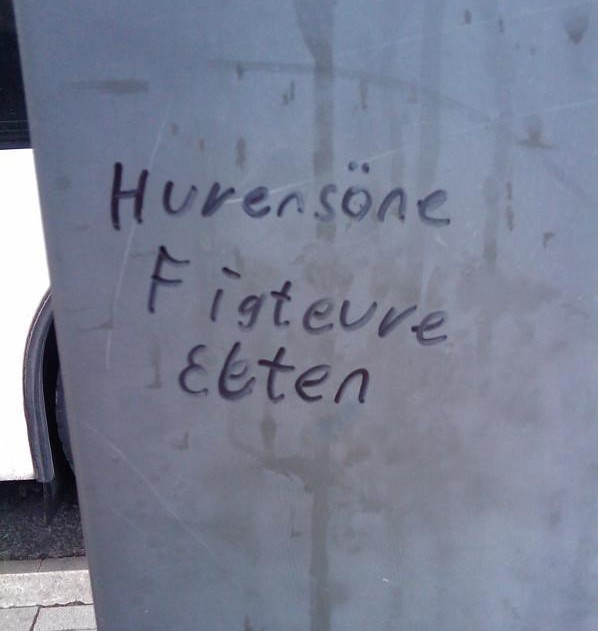 Hurensöne
Figteure
Ektten